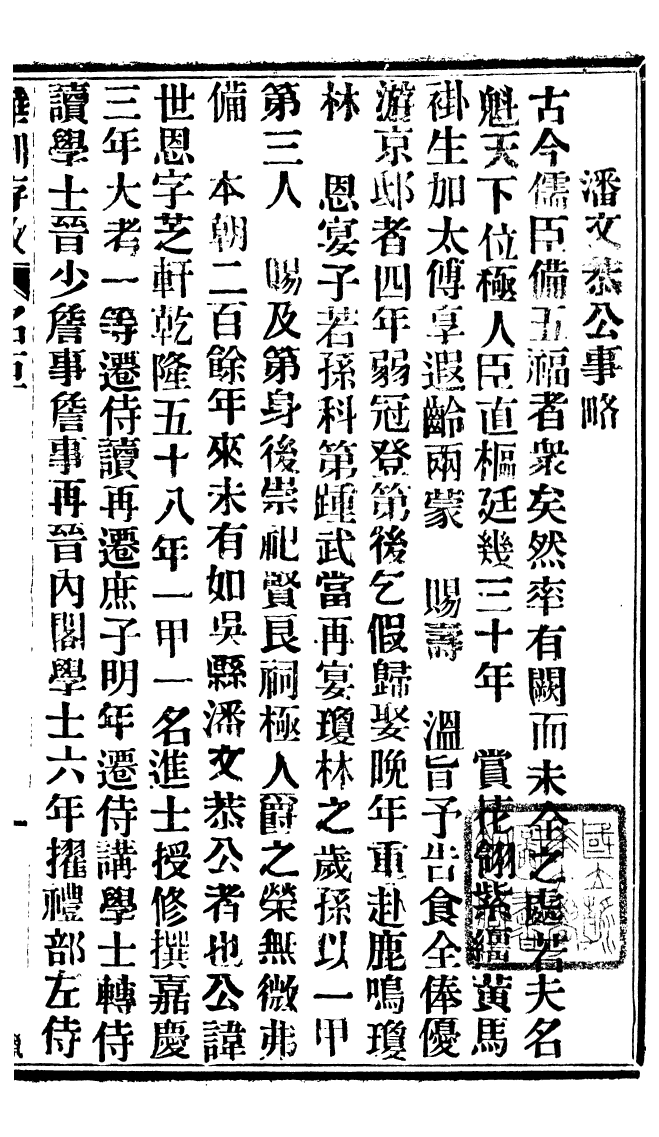 潘文恭公事略
古今儒臣備五福者衆矣然率有闕而未全之處若夫名
魁天下位極人臣直樞廷幾三十年 賞花翎紫繮黃馬
褂生加太傅享遐齡兩蒙 賜壽 溫旨予告食全俸優
游京邸者四年弱冠登第後乞假歸娶晚年重赴鹿鳴瓊
林 恩宴子若孫科第踵武當再宴瓊林之歲孫以一甲
第三人 賜及第身後崇祀賢良祠極人爵之榮無微弗
備 本朝二百餘年來未有如吳縣潘文恭公者也公諱
世恩字芝軒乾隆五十八年一甲一名進士授修撰嘉慶
三年大考一等遷侍讀再遷庶子明年遷侍講學士轉侍
讀學士晉少詹事詹事再晉內閣學士六年擢禮部左侍
名臣
一